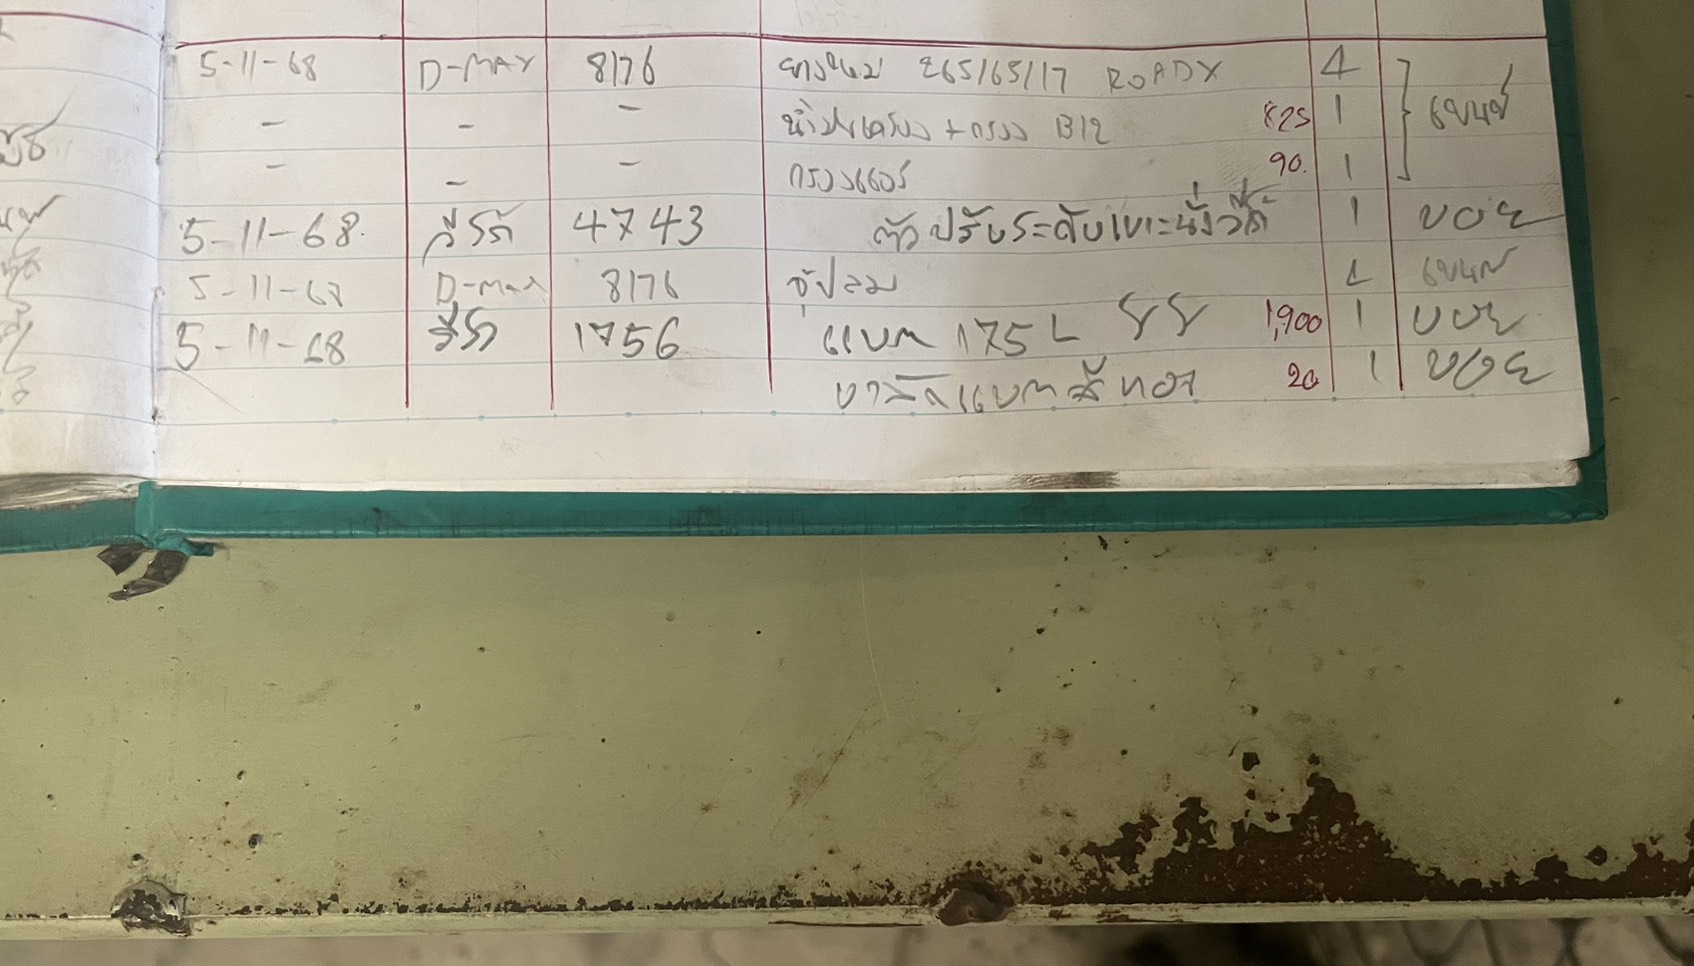 5-11-68 D-MAX 8176 ยางใหม่ 265/65/17 ROADX 4
- - - น้ำมันเครื่อง + กรอง B12 825 1 เขนย์
- - - กรองแอร์ 90. 1
5-11-68. วีโก้ 4743 ตัวปรับระดับเบาะนั่งวีโก้ 1 บอย
5-11-68 D-max 8176 จุ๊ปลม 4
5-11-68 วีโก้ 1756 แบต 175 L 1,900 1 บอย
แบตสีทอง 20 1 บอย